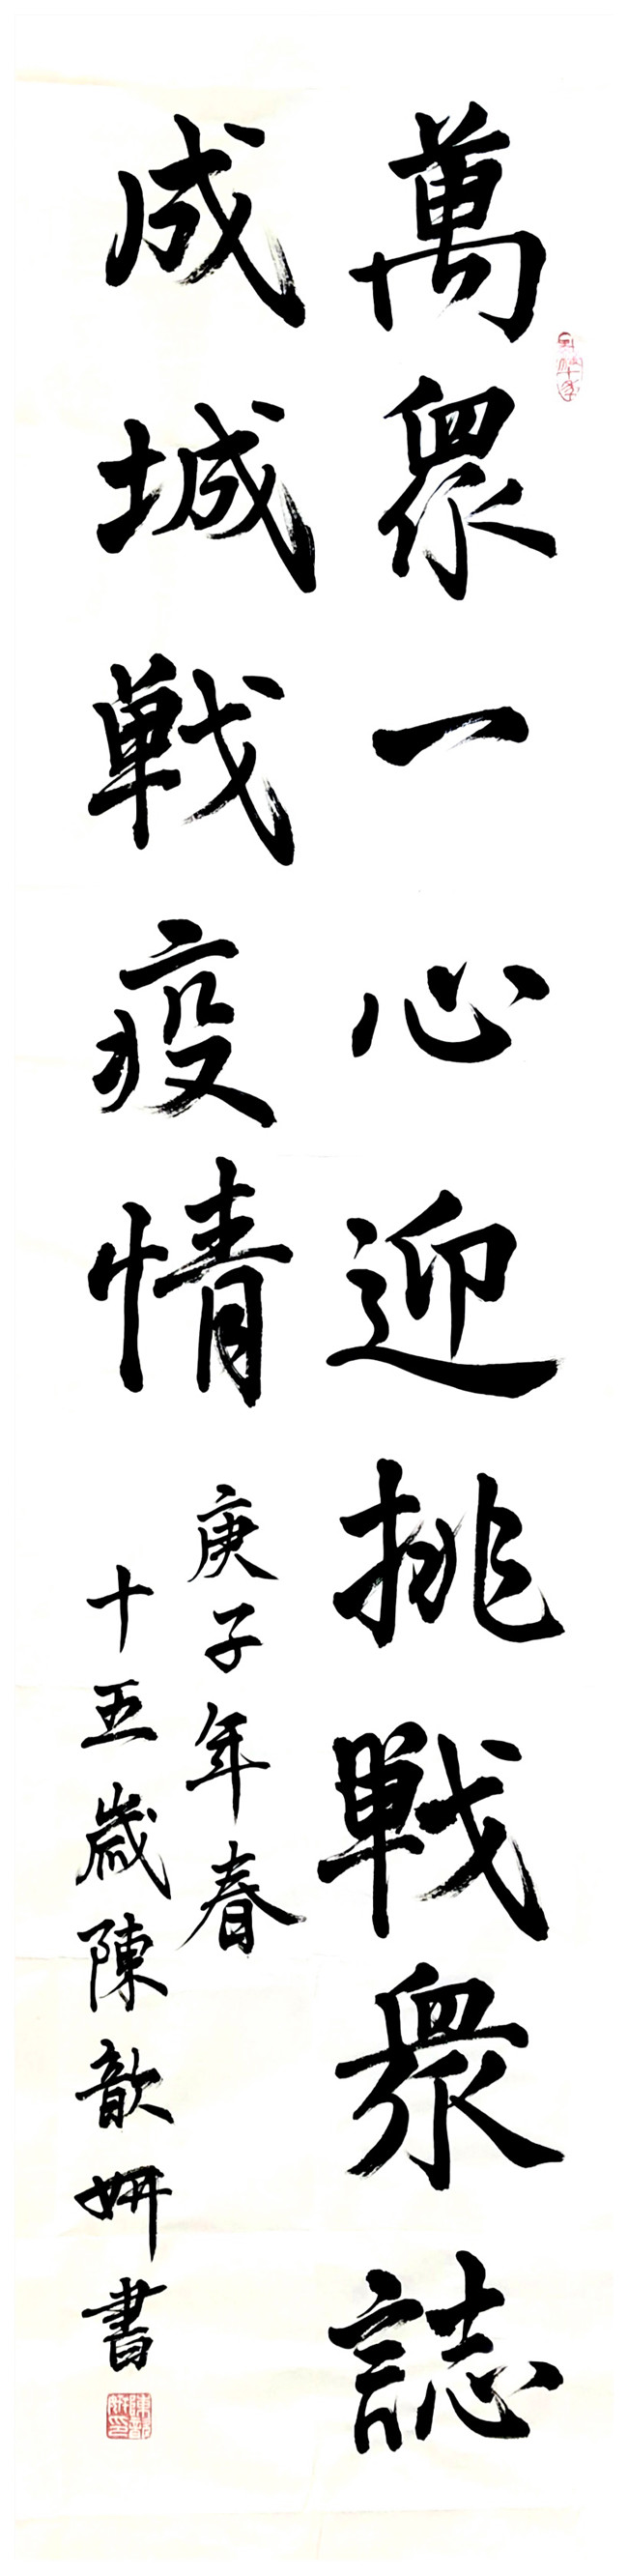 萬眾一心迎挑戰眾誌
成城戰疫情
庚子年春
十五歲陳歆妍書